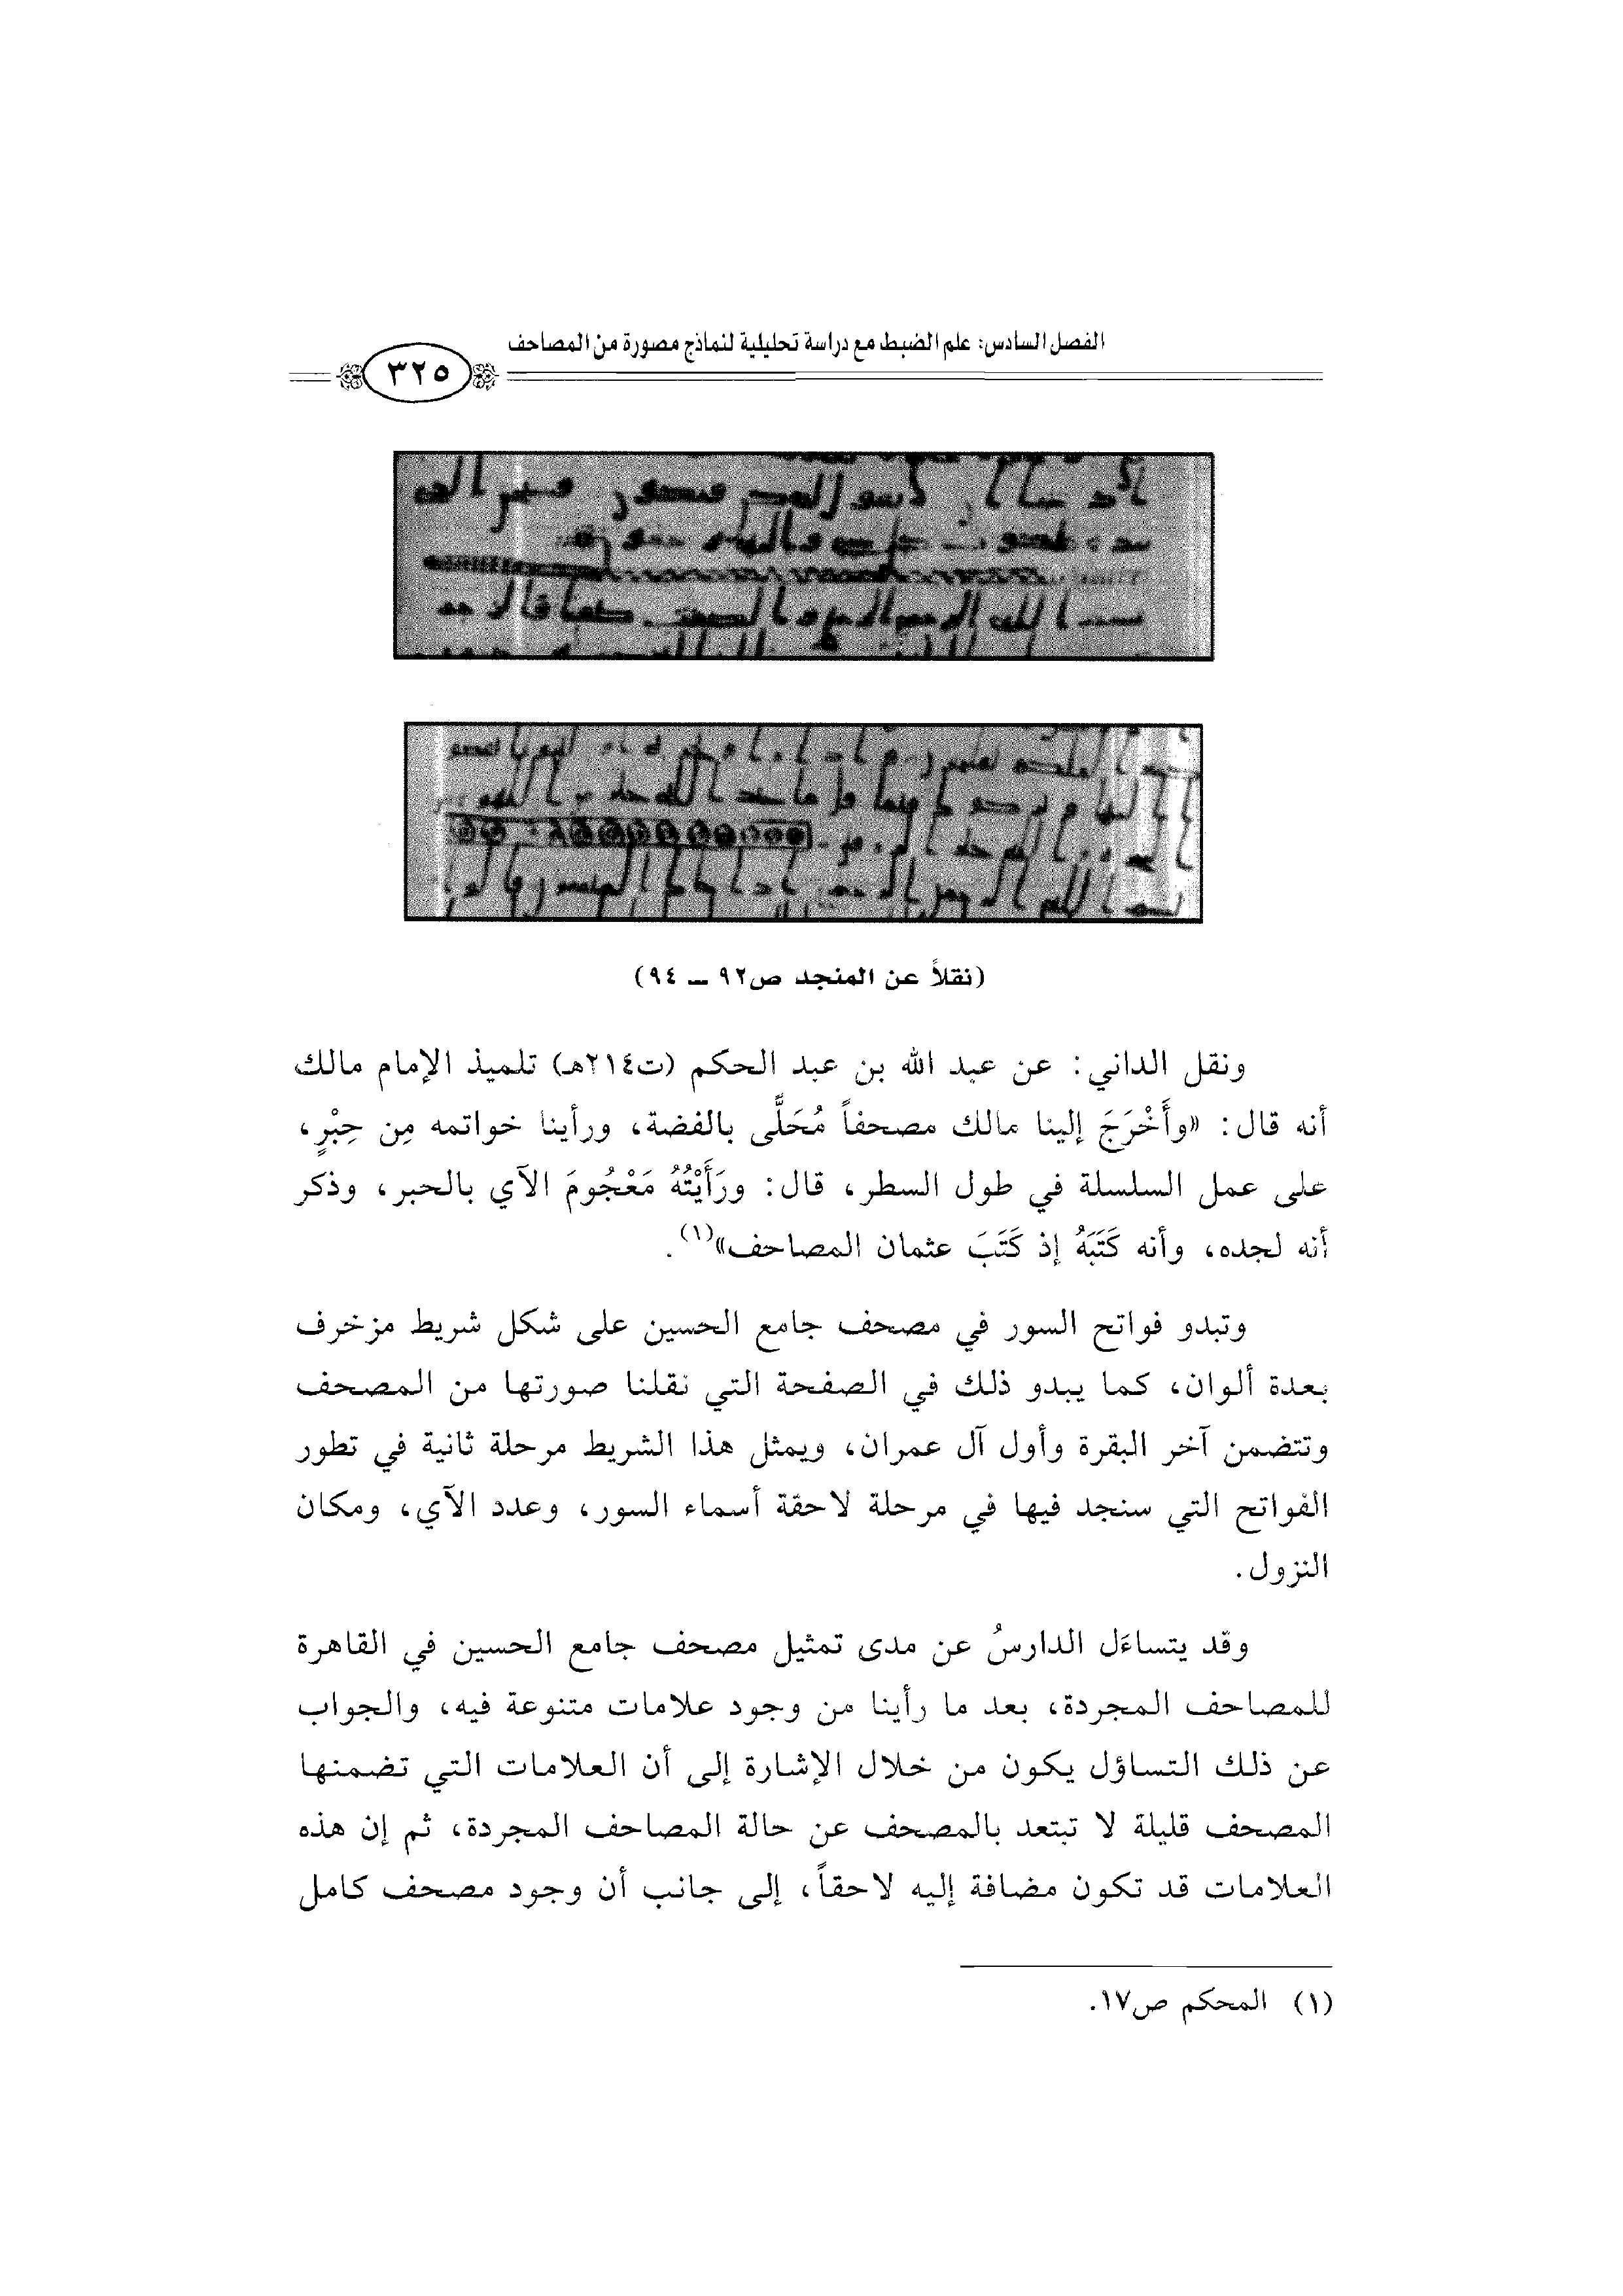 الفصل السادس: علم الضبط مع دراسة تحليلية لنماذج مصورة من المصاحف
٣٢٥
(نقلاً عن المنجد ص٩٢ ــ ٩٤)
ونقل الداني: عن عبد الله بن عبد الحكم (ت٢١٤هـ) تلميذ الإمام مالك
أنه قال: «وأَخْرَجَ إلينا مالك مصحفاً مُحَلًّى بالفضة، ورأينا خواتمه مِن حِبْرٍ،
على عمل السلسلة في طول السطر، قال: ورَأَيْتُهُ مَعْجُومَ الآي بالحبر، وذكر
أنه لجده، وأنه كَتَبَهُ إذ كَتَبَ عثمان المصاحف»(١).
وتبدو فواتح السور في مصحف جامع الحسين على شكل شريط مزخرف
بعدة ألوان، كما يبدو ذلك في الصفحة التي نقلنا صورتها من المصحف
وتتضمن آخر البقرة وأول آل عمران، ويمثل هذا الشريط مرحلة ثانية في تطور
الفواتح التي سنجد فيها في مرحلة لاحقة أسماء السور، وعدد الآي، ومكان
النزول.
وقد يتساءَل الدارسُ عن مدى تمثيل مصحف جامع الحسين في القاهرة
للمصاحف المجردة، بعد ما رأينا من وجود علامات متنوعة فيه، والجواب
عن ذلك التساؤل يكون من خلال الإشارة إلى أن العلامات التي تضمنها
المصحف قليلة لا تبتعد بالمصحف عن حالة المصاحف المجردة، ثم إن هذه
العلامات قد تكون مضافة إليه لاحقاً، إلى جانب أن وجود مصحف كامل
(١) المحكم ص١٧.